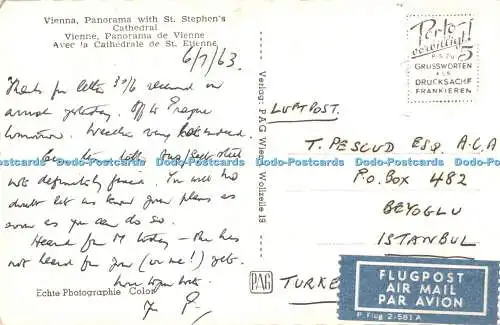 Vienna, Panorama with St. Stephen's
Cathedral
Vienne, Panorama de Vienne
Avec la Cathédrale de St. Etienne
6/7/63.
Thanks for letter 30/6 received on
arrival yesterday. Off to Prague
tomorrow. Weather very hot indeed.
not definitely fixed. You will no
doubt let us know your plans as
soon as you can do so.
Heard from M today – she has
not heard from you (or me!) yet.
Echte Photographie Colon
Verlag: PAG Wien, Wollzeile 19
PAG
Porto-
vorteilig!
BIS ZU 5
GRUSSWORTEN
ALS
DRUCKSACHE
FRANKIEREN
LUFTPOST.
T. PESCUD ESQ. A.C.A
P.O. BOX 482
BEYOGLU
ISTANBUL
TURKE
FLUGPOST
AIR MAIL
PAR AVION
P. Flug 2-581 A
Dodo-Postcards Dodo-Postcards Dodo-Postcards Dodo-Postcards